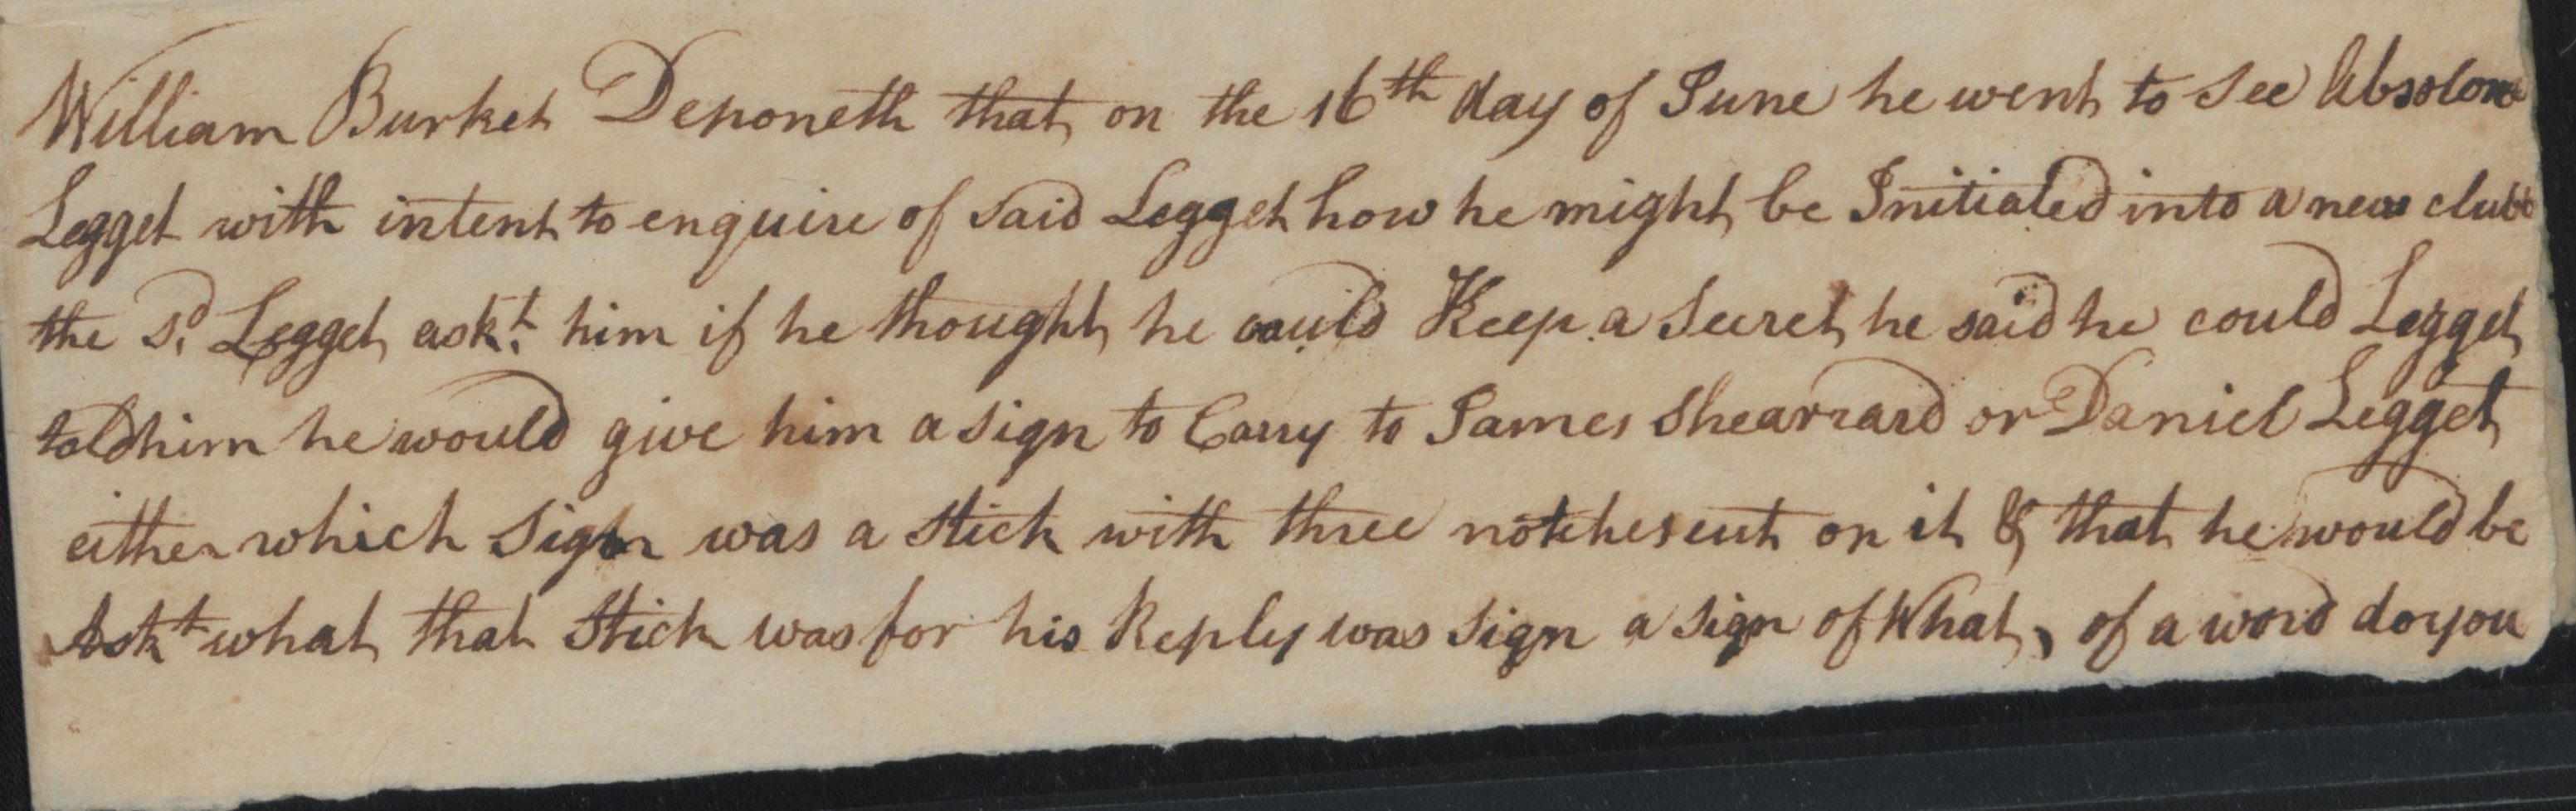 William Burket Deponeth that on the 16th day of June he went to See Absolom
Legget with intent to enquire of said Legget how he might be Initiated into a new clubb
the sd. Legget askt. him if he thought he could Keep a Secret he said he could Legget
told him he would give him a sign to Carry to James Shearrard or Daniel Legget
either which Sign was a Stick with three notches cut on it & that he would be
Askt what that Stick was for his Reply was Sign a sign of What, of a word do you